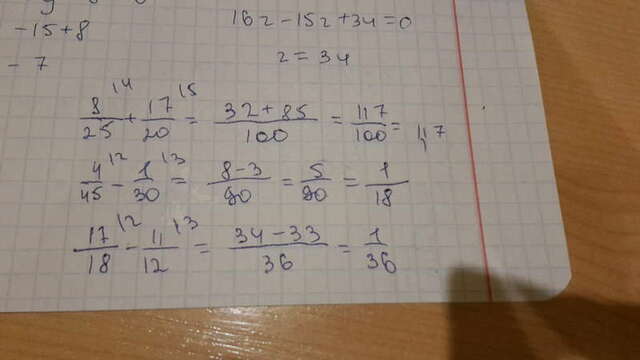 -15+8 16z-15z+34=0
-7 z=34
8/25 \4 + 17/20 \5 = 32+85/100 = 117/100 = 1,17
4/45 \2 - 1/30 \3 = 8-3/90 = 5/90 = 1/18
17/18 \2 - 11/12 \3 = 34-33/36 = 1/36